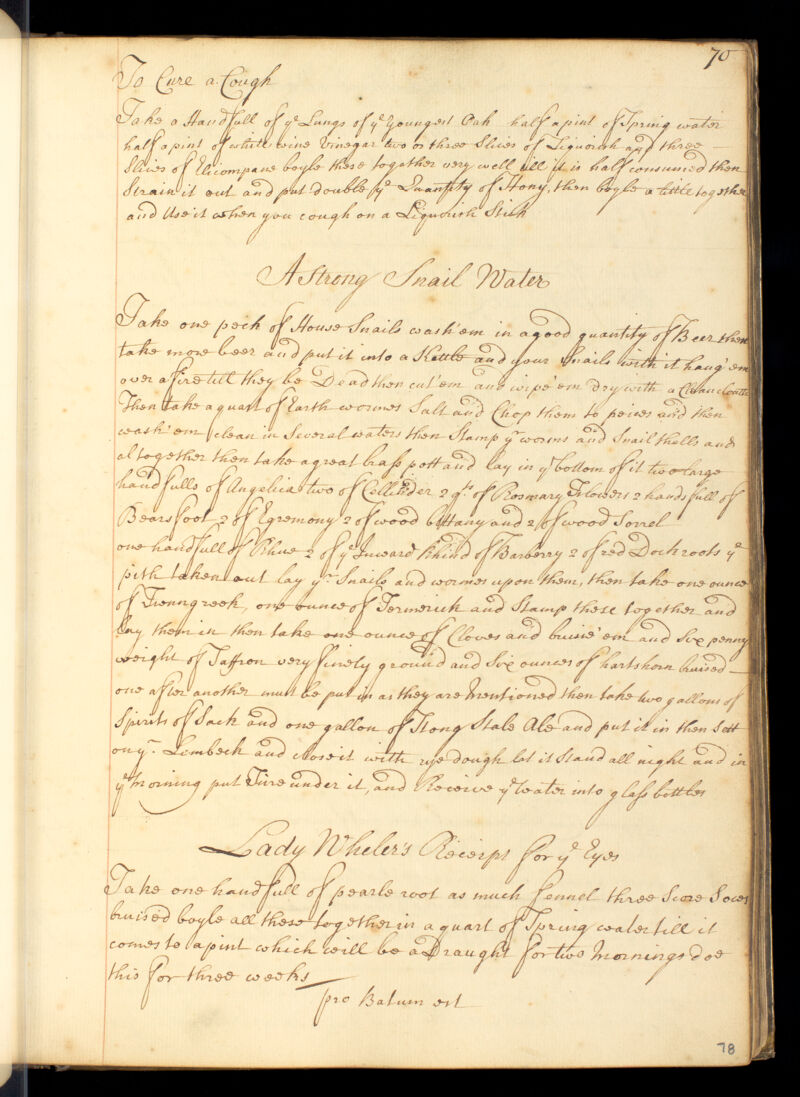 70
To Cure a Cough
Take a Handfull of yᵉ Lungs of yᵉ Youngest Oak half a pint of Spring water
half a pint of white wine Vinegar two or three Slices of Liquorish and three —
Slices of Elicompane boyle these together very well till it is half consumed then
Strain it out and put double yᵉ Quantity of Hony, then boyle a little together
and Use it when you cough on a Liquorish Stick
A Strong Snail Water
Take one peck of House Snails wash'em in a good quantity of Beer then
take more beer and put it into a Kettle and your Snails with it hang'em
over a fire till they be Dead then cut'em and wipe'em Dry with a Clean cloath
Then take a quart of Earth wormes Salt and Chop them to peices and then
wash'em clean in Several waters then Stamp yʳ worms and Snail shells and
al together then take a great brass pott and lay in yᵉ bottom of it two large
handfulls of Angelica two of Cellender 2 qᵗˢ of Rosmary Flowers 2 hands full of
Bearsfoot 2 of Egremony 2 of wood bittany and 2 of wood Sorrel
one handfull of Rhue 2 of yᵉ Inward Rhind of Barberry 2 of red Dock roots yᵉ
pith taken out lay yʳ Snails and wormes upon them, then take one ounce
of Fenngreek, one ounce of Termerick and Stamp these together and
lay them in then take one ounce of Cloves and buise'em and Six penny
weight of Saffron very finely ground and Six ounces of hartshorn bruised —
one after another must be put in as they are Mentioned then take two gallons of
Spirits of Sack and one gallon of Stong Stale Ale and put it in then Sett
on yʳ Lembeck and close it with rye dough let it Stand all night and in
yᵉ Morning put Fire under it, and Receive yᵉ water into glass bottles
Lady Wheler's Receipt for yᵉ Eyes
Take one handfull of pearle root as much fennel three Score Sows
bruised boyle all these together in a quart of Spring water till it
comes to a pint which will be a Draught for two Mornings doe
this for three weeks
pro Batum est
78